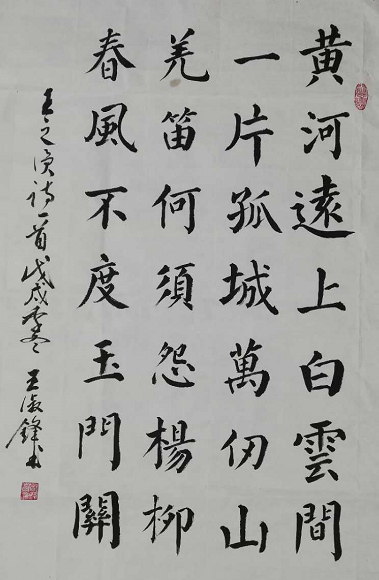 黄河遠上白雲間
一片孤城萬仞山
羌笛何須怨楊柳
春風不度玉門關
王之渙詩一首戊戌季冬王海鋒书